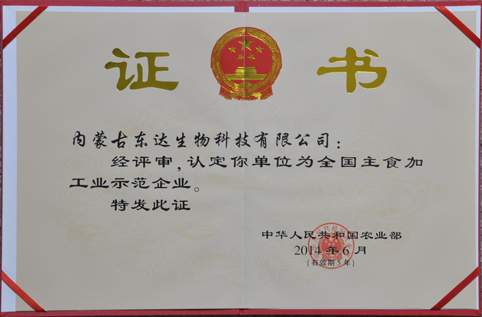 证 书
内蒙古东达生物科技有限公司：
经评审，认定你单位为全国主食加
工业示范企业。
特发此证
中华人民共和国农业部
2014年6月
（有效期5年）